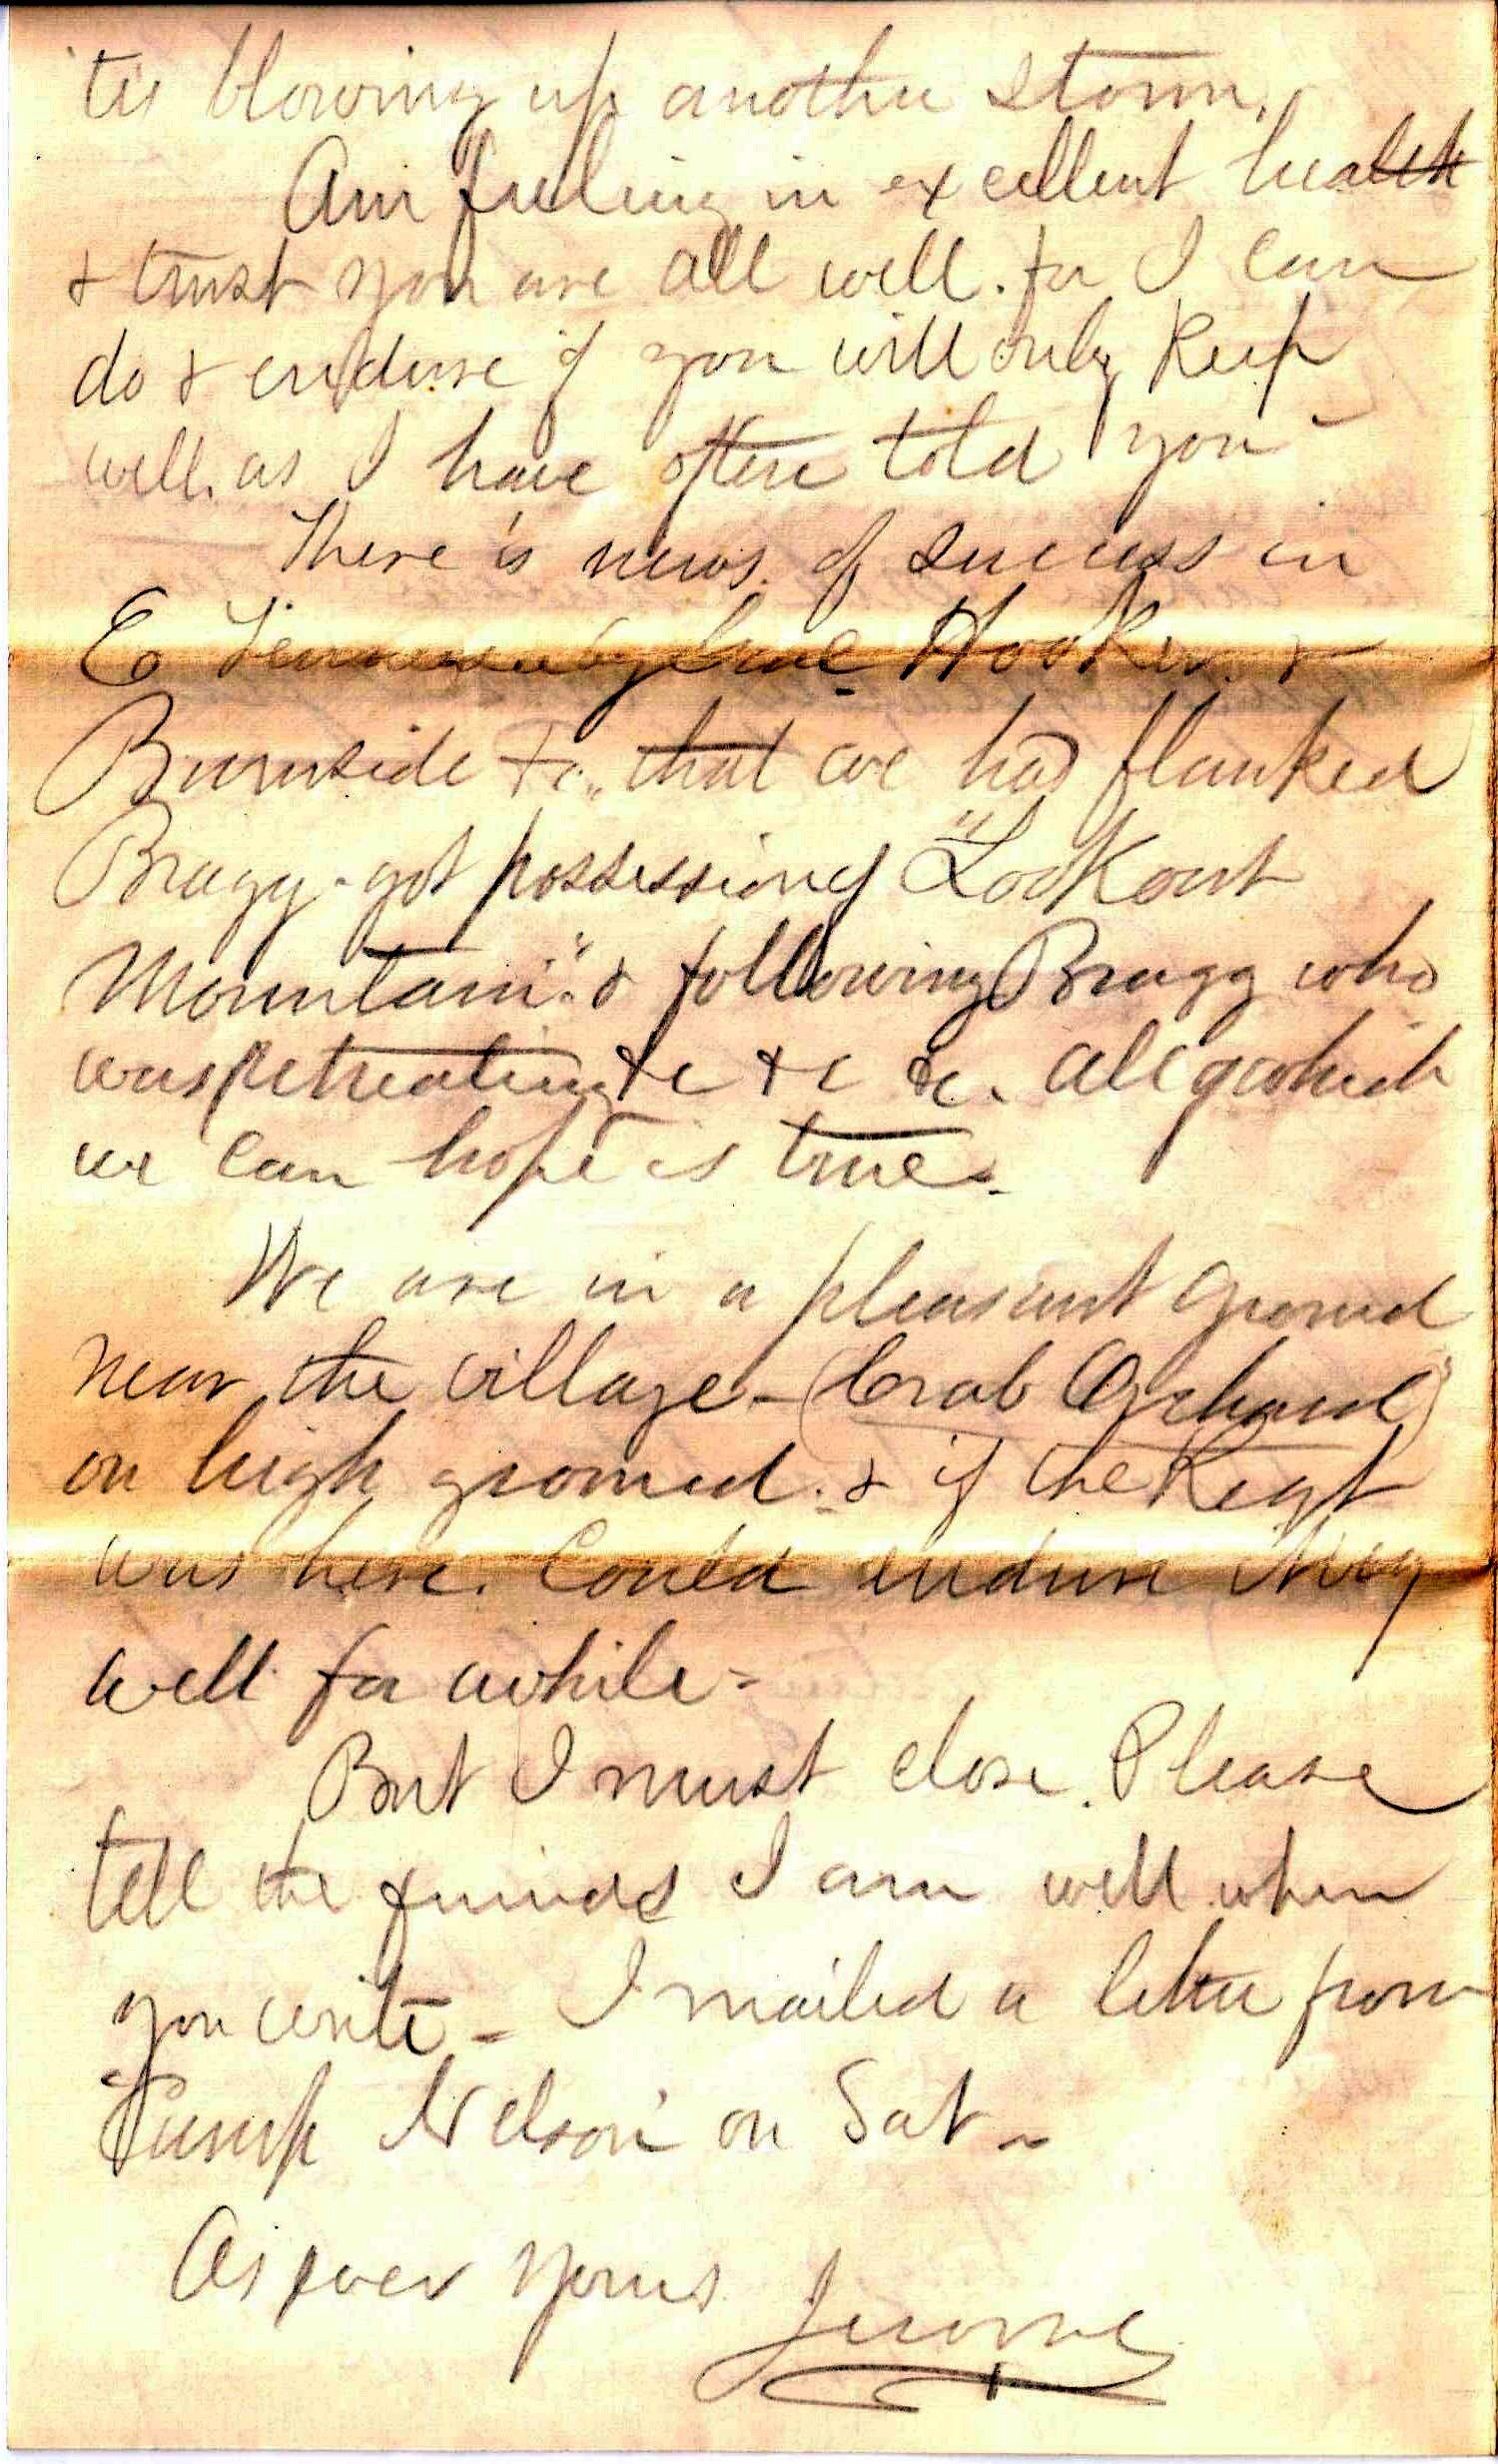 'tis blowing up another storm.
Am feeling in excellent health
& trust you are all well. for I can
do & endure if you will only keep
well. as I have often told you -
There is news. of success in
E. Tennessee by Genl Hooker. &
Burnside &c. that we had flanked
Bragg - got possession of "Lookout
Mountain". & following Bragg who
was retreating &c &c &c. all of which
we can hope is true.
We are in a pleasant ground
near the village - (Crab Orchard)
on high ground. & if the Regt
was here. Could endure very
well for awhile -
But I must close. Please
tell the friends I am well when
you write - I mailed a letter from
"Camp Nelson" on Sat -
As ever Yours
Jerome